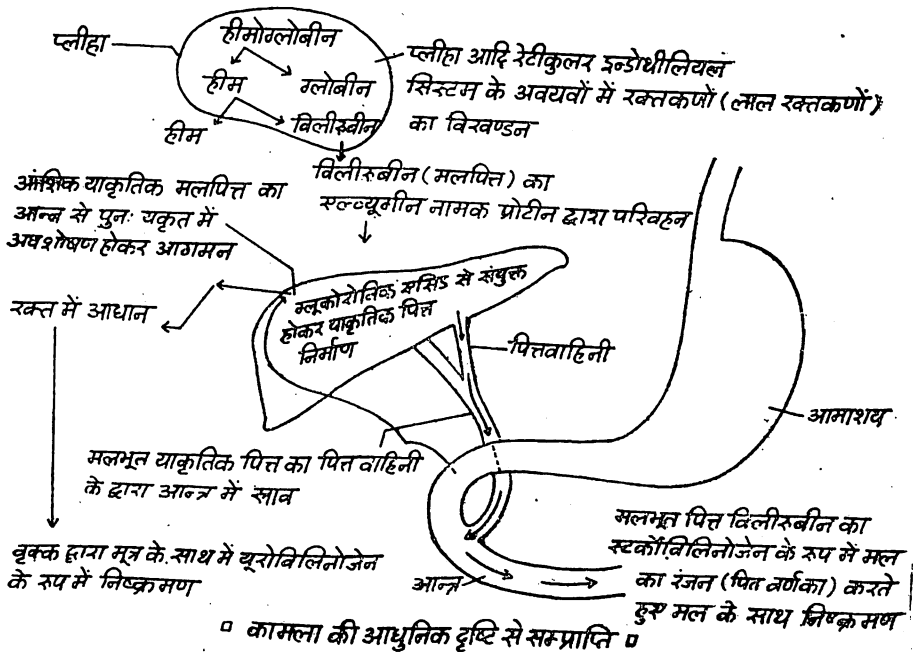 प्लीहा
हीमोग्लोबीन
हीम
ग्लोबीन
हीम
विलीरूबीन
प्लीहा आदि रेटीकुलर इन्डोथीलियल
सिस्टम के अवयवों में रक्तकणों (लाल रक्तकणों)
का विखण्डन
विलीरूबीन (मलपित्त) का
एल्व्यूमीन नामक प्रोटीन द्वारा परिवहन
आंशिक याकृतिक मलपित्त का
आन्त्र से पुनः यकृत में
अवशोषण होकर आगमन
रक्त में आधान
ग्लूकोरोनिक एसिड से संयुक्त
होकर याकृतिक पित्त
निर्माण
पित्तवाहिनी
आमाशय
मलभूत याकृतिक पित्त का पित्त वाहिनी
के द्वारा आन्त्र में स्राव
वृक्क द्वारा मूत्र के साथ में यूरोविलिनोजेन
के रूप में निष्क्रमण
आन्त्र
मलभूत पित्त विलीरूबीन का
स्टर्कोविलिनोजेन के रूप में मल
का रंजन (पित वर्णका) करते
हुए मल के साथ निष्क्रमण
कामला की आधुनिक दृष्टि से सम्प्राप्ति